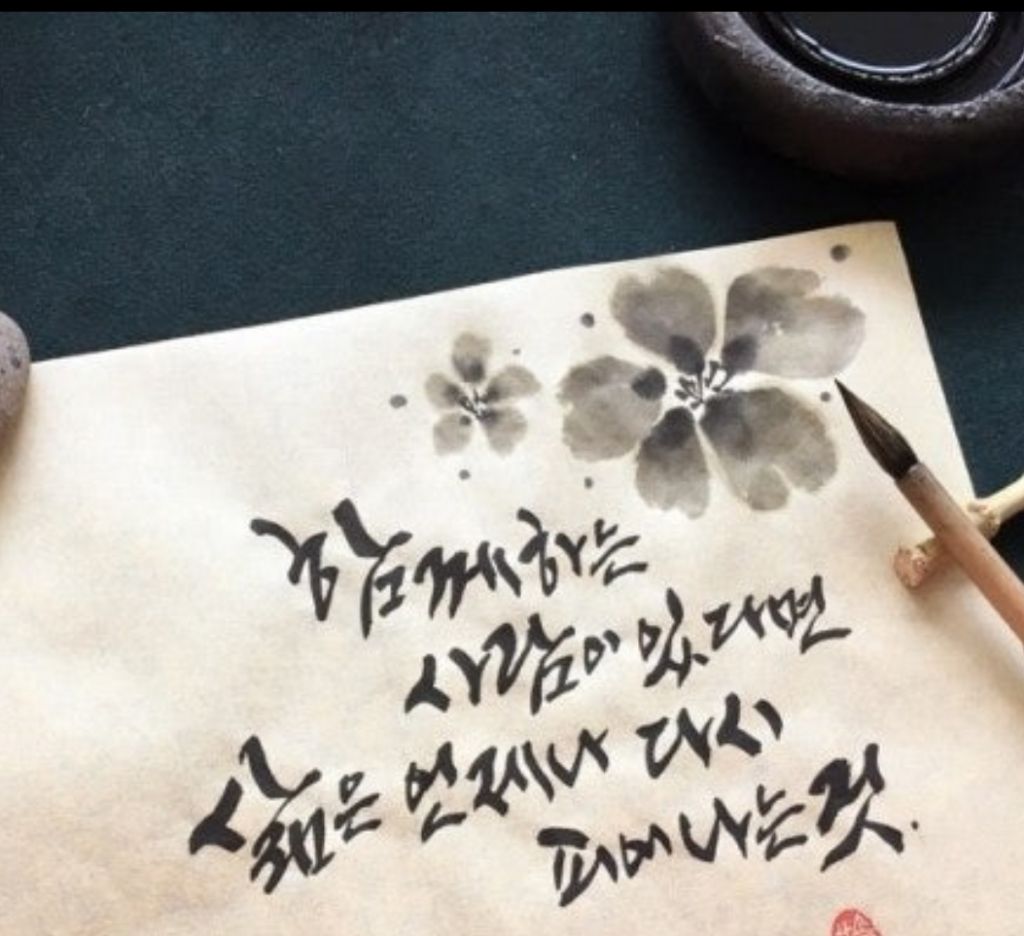 함께하는
사람이 있다면
삶은 언제나 다시
피어나는것.